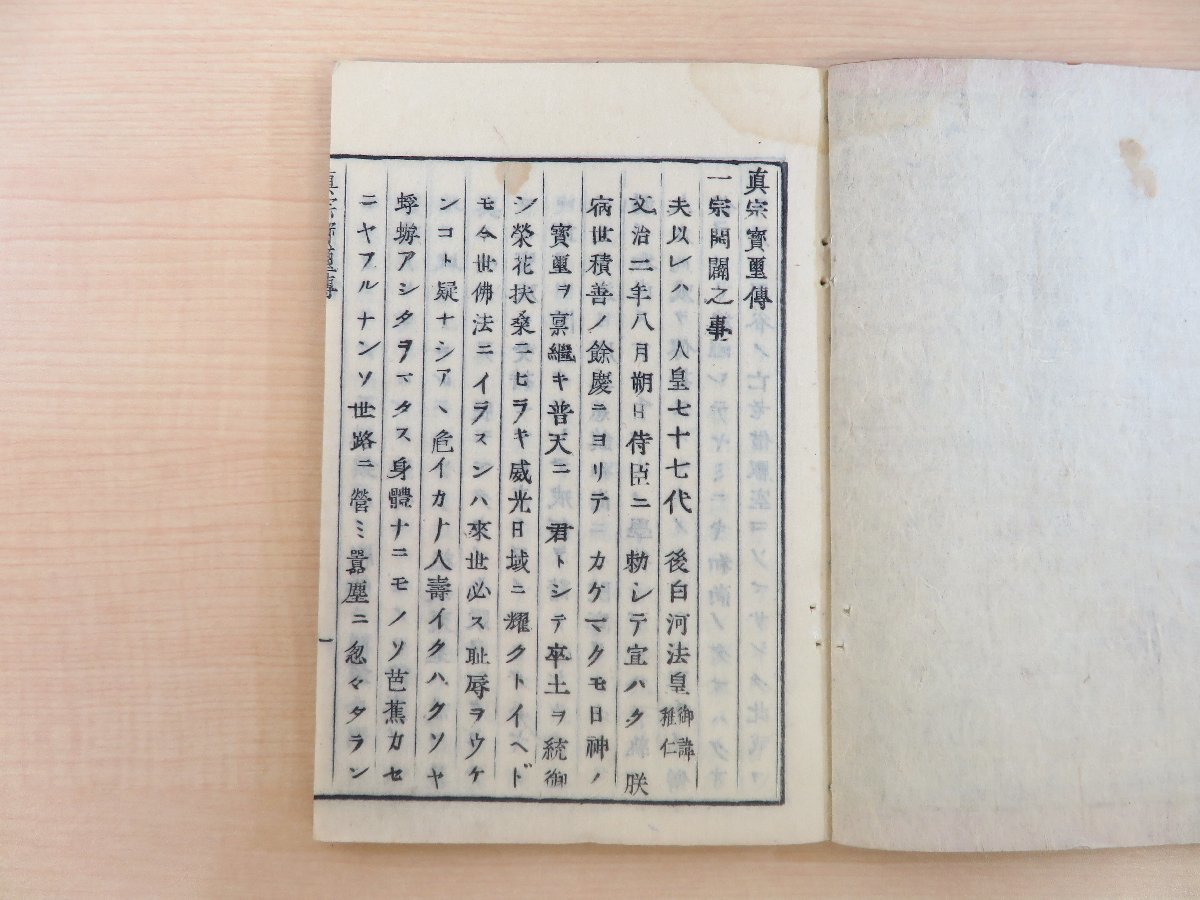 真宗寳璽傳
一宗開闢之事
夫以レハ 人皇七十七代 後白河法皇 御諱雅仁
文治二年八月朔日侍臣ニ學勅シテ宣ハク 朕
病世積善ノ餘慶ニヨリテ カケマクモ日神ノ
寳璽ヲ稟繼キ普天ニ 君トシテ卒土ヲ統御
シ榮花扶桑ニヒラキ威光日域ニ耀クトイヘド
モ今世佛法ニイラスンハ來世必ス耻辱ヲウケ
ンコト疑ナシアヽ危イカナ人壽イクハクソヤ
蜉蝣アシタヲマタス身體ナニモノソ芭蕉カセ
ニヤフルナンソ世路ニ營ミ囂塵ニ忽々タラン
真宗寳璽傳
一